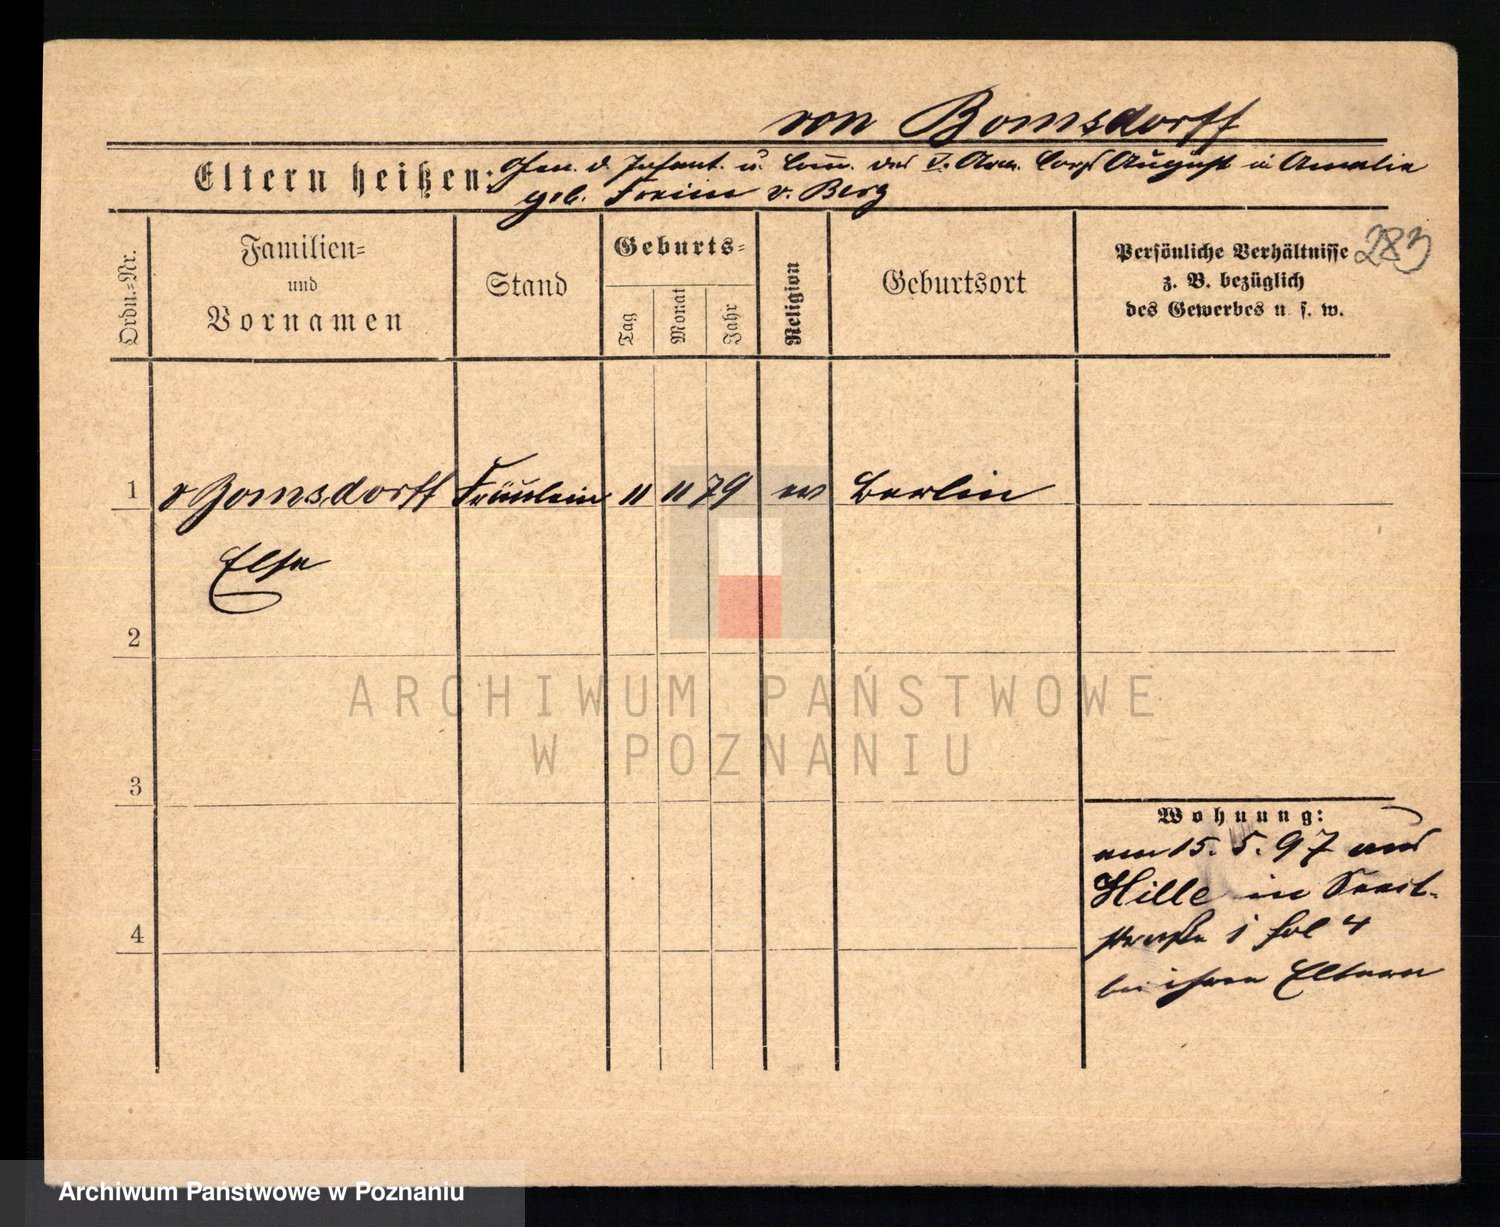 von Bomsdorff
Eltern heißen: Gen. d. Infant. u. Com. des V. Arm. Corps August u Amalie
geb. Freiin v. Berg
Ordn.-Nr.
Familien-
und
Vornamen
Stand
Geburts-
Tag
Monat
Jahr
Religion
Geburtsort
Persönliche Verhältnisse
z. B. bezüglich
des Gewerbes u. s. w.
283
1 v Bomsdorff Fräulein 11 11 79 ev Berlin
Else
2
ARCHIWUM PAŃSTWOWE
W POZNANIU
3
Wohnung:
am 15. 5. 97 aus
Halle in
straße 1 fol 4
bei ihren Eltern
4
Archiwum Państwowe w Poznaniu